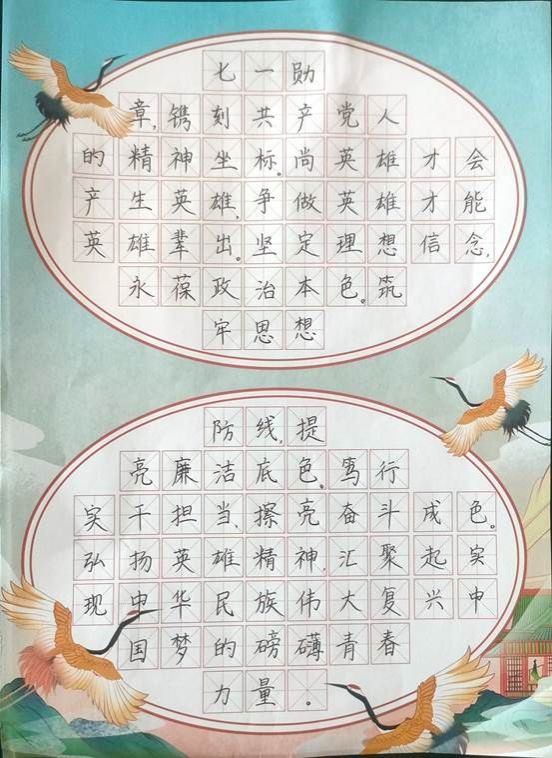 七一勋
章,镌刻共产党人
的精神坐标。尚英雄才会
产生英雄,争做英雄才能
英雄辈出。坚定理想信念,
永葆政治本色。筑
牢思想
防线,提
亮廉洁底色。笃行
实干担当、擦亮奋斗成色。
弘扬英雄精神,汇聚起实
现中华民族伟大复兴中
国梦的磅礴青春
力量。